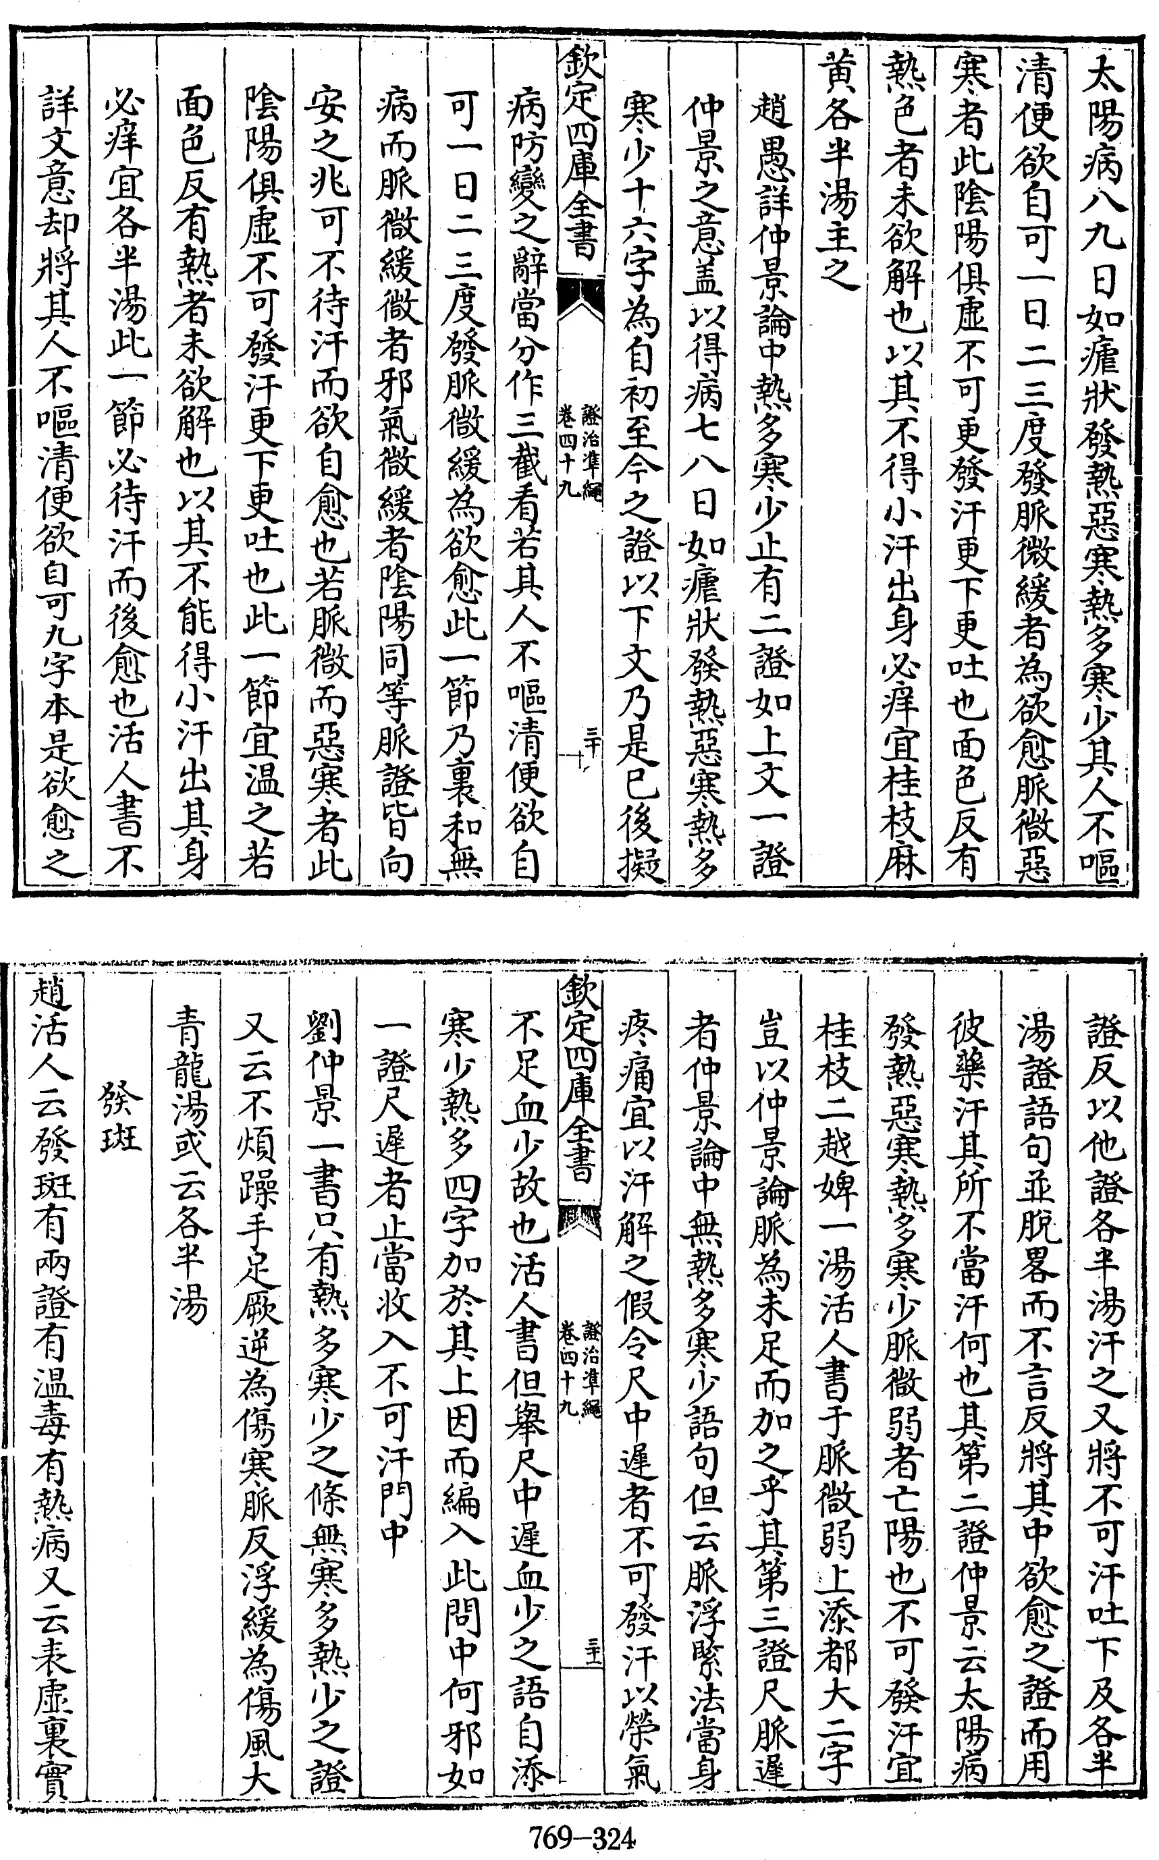 太陽病八九日如瘧狀發熱惡寒熱多寒少其人不嘔
清便欲自可一日二三度發脈微緩者為欲愈脈微惡
寒者此陰陽俱虛不可更發汗更下更吐也面色反有
熱色者未欲解也以其不得小汗出身必痒宜桂枝麻
黄各半湯主之
趙愚詳仲景論中熱多寒少止有二證如上文一證
仲景之意盖以得病七八日如瘧狀發熱惡寒熱多
寒少十六字為自初至今之證以下文乃是已後擬
欽定四庫全書
證治準繩
卷四十九
三十
病防變之辭當分作三截看若其人不嘔清便欲自
可一日二三度發脈微緩為欲愈此一節乃裏和無
病而脈微緩微者邪氣微緩者陰陽同等脈證皆向
安之兆可不待汗而欲自愈也若脈微而惡寒者此
陰陽俱虛不可發汗更下更吐也此一節宜温之若
面色反有熱者未欲解也以其不能得小汗出其身
必痒宜各半湯此一節必待汗而後愈也活人書不
詳文意却將其人不嘔清便欲自可九字本是欲愈之
證反以他證各半湯汗之又將不可汗吐下及各半
湯證語句並脫畧而不言反將其中欲愈之證而用
彼藥汗其所不當汗何也其第二證仲景云太陽病
發熱惡寒熱多寒少脈微弱者亡陽也不可發汗宜
桂枝二越婢一湯活人書于脈微弱上添都大二字
豈以仲景論脈為未足而加之乎其第三證尺脈遲
者仲景論中無熱多寒少語句但云脈浮緊法當身
疼痛宜以汗解之假令尺中遲者不可發汗以榮氣
欽定四庫全書
證治準繩
卷四十九
三十一
不足血少故也活人書但舉尺中遲血少之語自添
寒少熱多四字加於其上因而編入此問中何邪如
一證尺遲者止當收入不可汗門中
劉仲景一書只有熱多寒少之條無寒多熱少之證
又云不煩躁手足厥逆為傷寒脈反浮緩為傷風大
青龍湯或云各半湯
發斑
趙活人云發斑有兩證有温毒有熱病又云表虛裏實
769-324